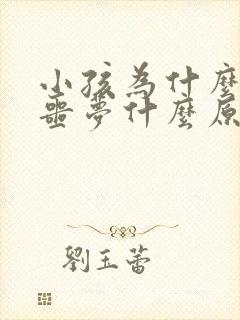 小孩為什麼
噩夢什麼原
劉玉蕾